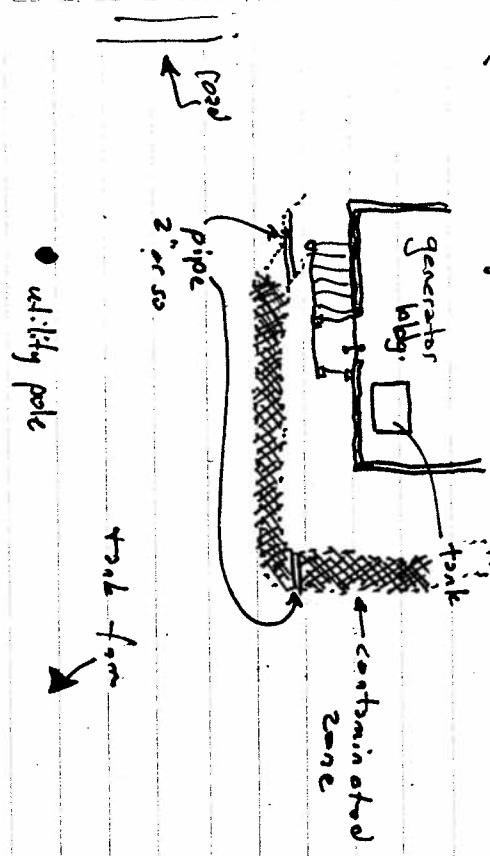 road
generator
bldg.
tank
pipe
2" or so
contaminated
zone
utility pole
tank farm